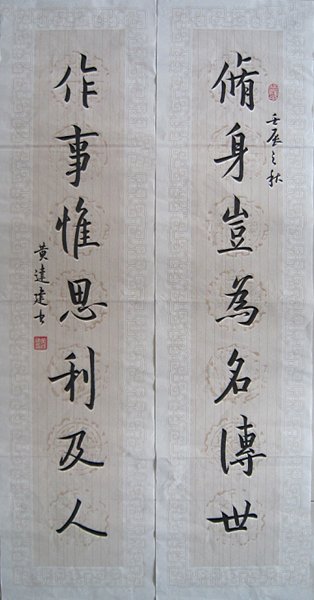 脩身豈為名傳世
壬辰之秋
作事惟思利及人
黄達建書